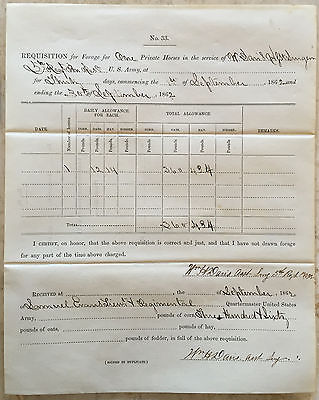 No. 33.
REQUISITION for Forage for One Private Horses in the service of
U. S. Army,
for Thirty days, commencing the 1st of September 1862 and
ending the 30th September, 1862
DATE. Number of horses. DAILY ALLOWANCE FOR EACH. TOTAL ALLOWANCE. REMARKS.
CORN. OATS. HAY. FODDER. CORN. OATS. HAY. FODDER.
Pounds. Pounds. Pounds. Pounds. Pounds. Pounds. Pounds. Pounds.
1 12 14 360
Total 360
I CERTIFY, on honor, that the above requisition is correct and just, and that I have not drawn forage
for any part of the time above charged.
Wm H Davis Asst Surg 5th
RECEIVED at September, 1862
of Samuel Evans Lieut & Regimental Quartermaster United States
Army, pounds of corn, Three Hundred & Sixty
pounds of oats, pounds of hay,
pounds of fodder, in full of the above requisition.
Wm H Davis Asst Surg
[SIGNED IN DUPLICATE.]